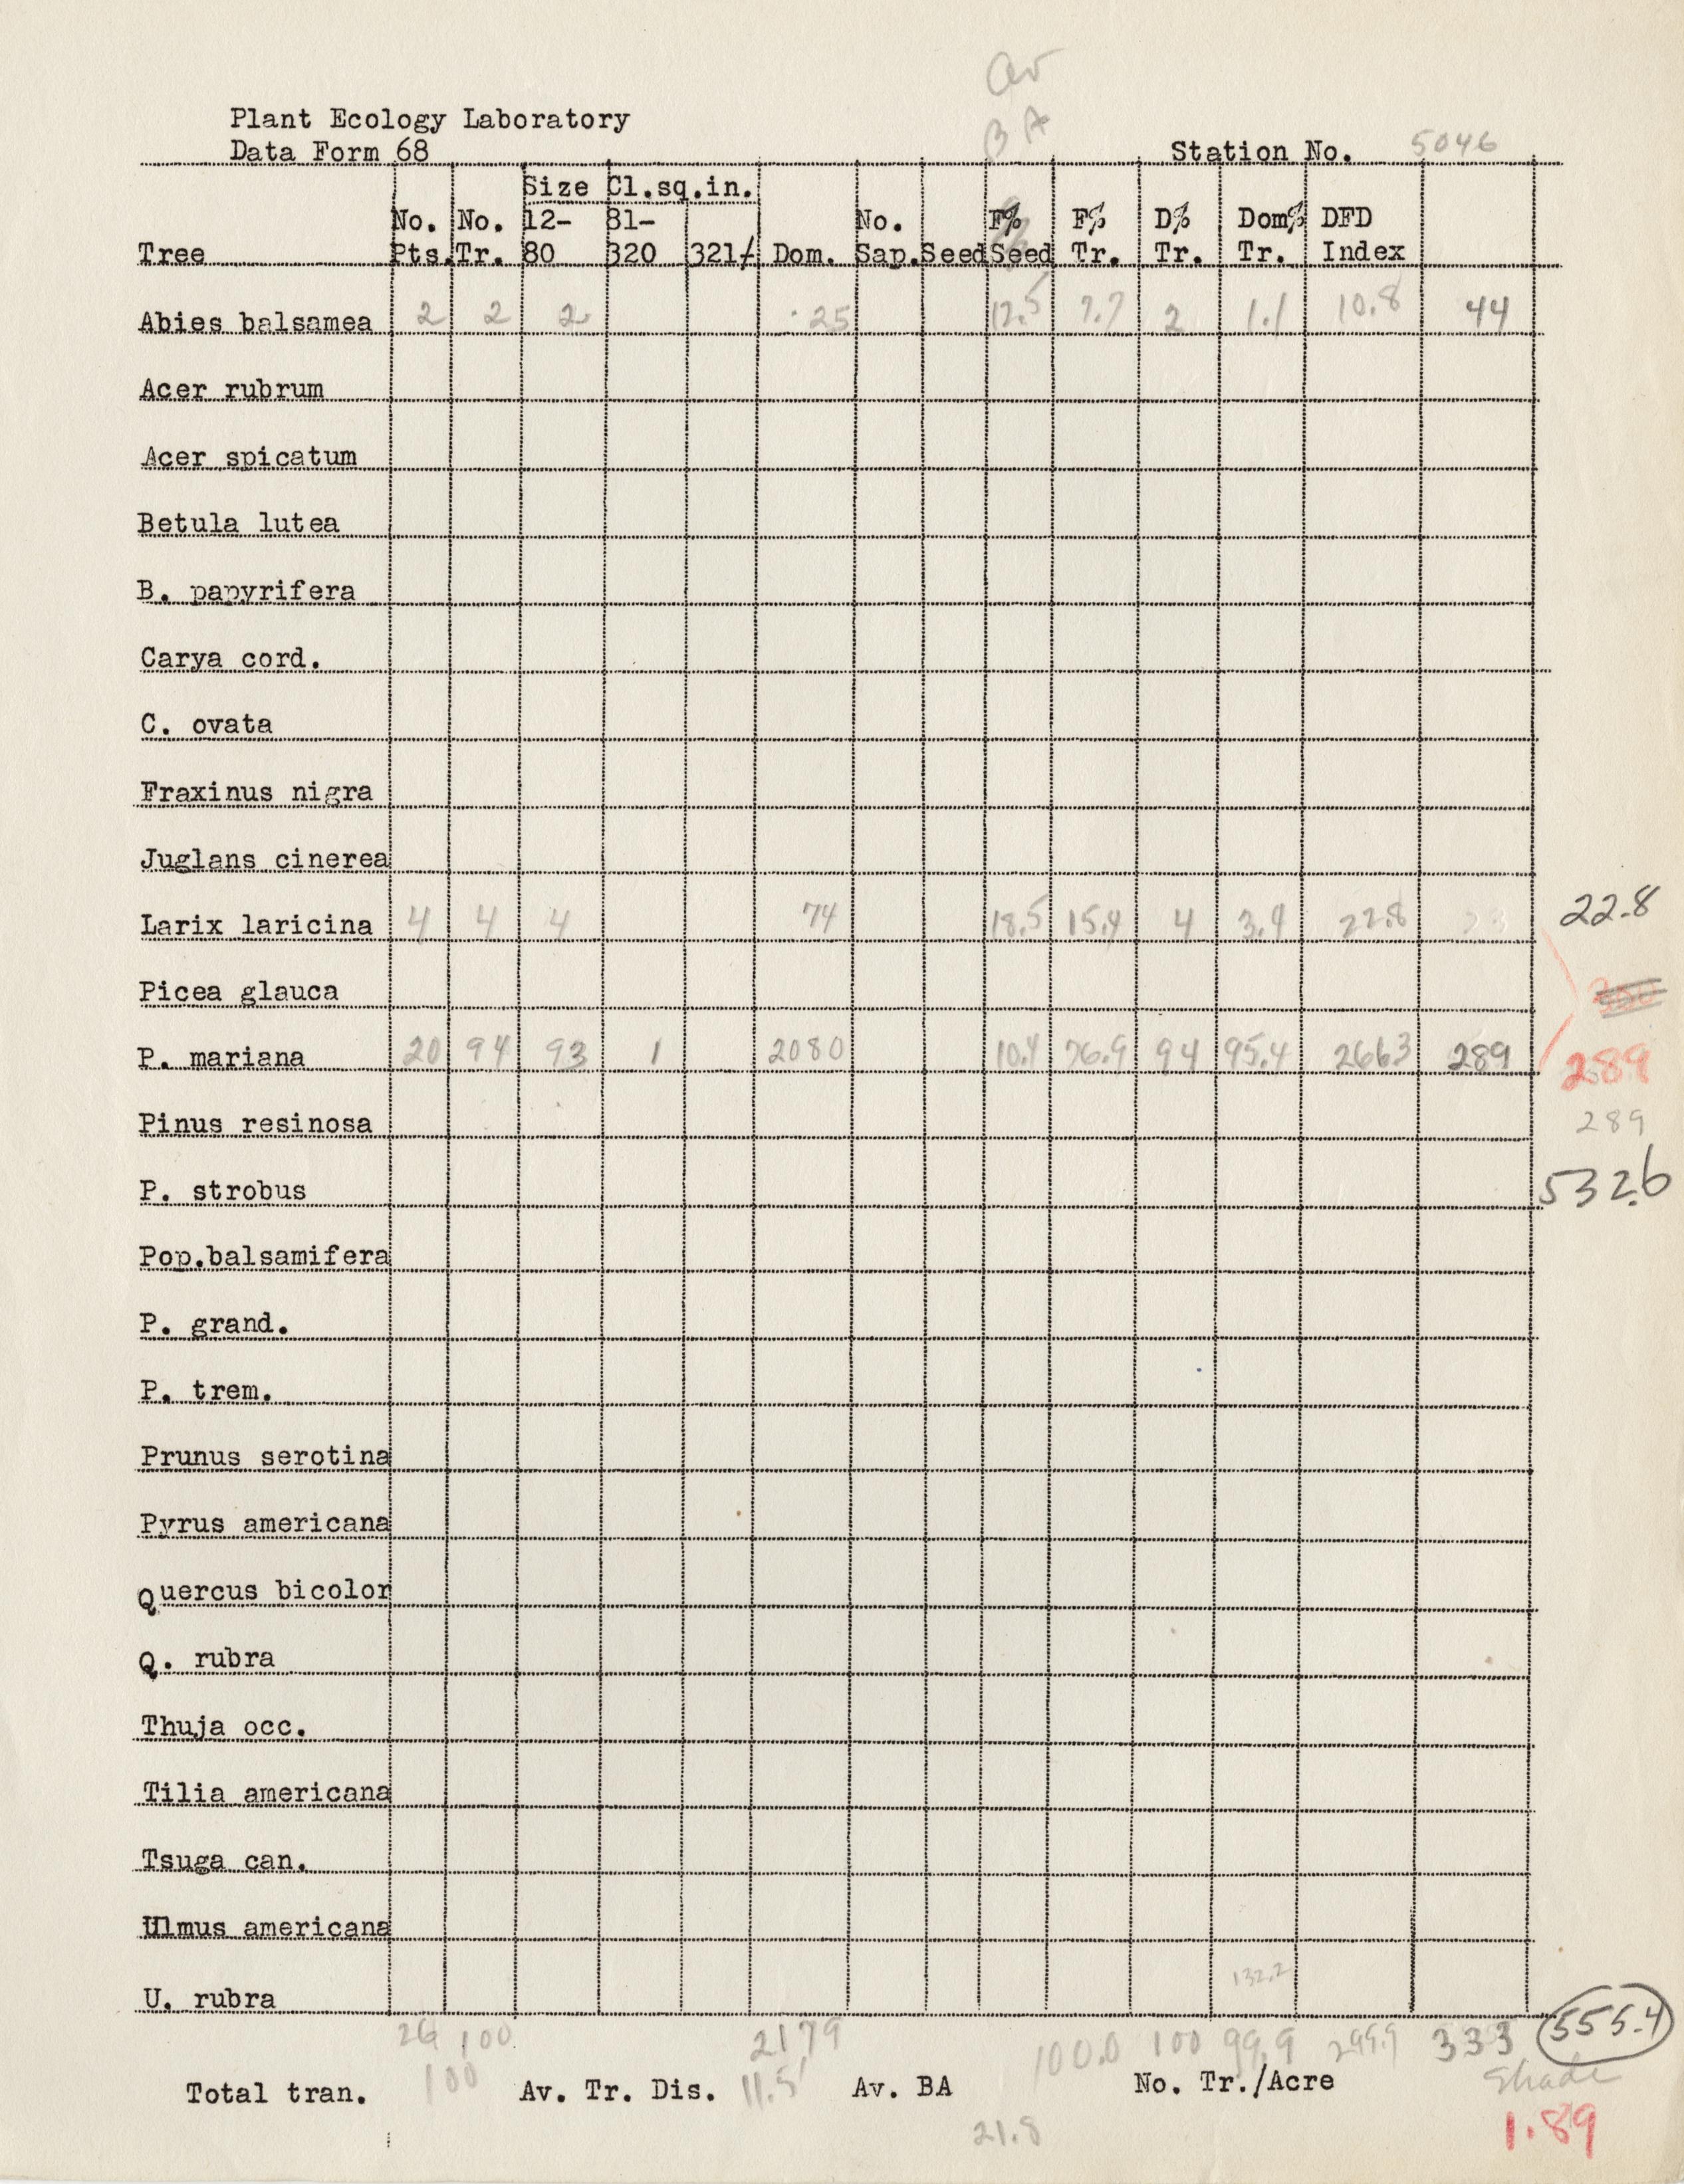 av
BA
Plant Ecology Laboratory
Data Form 68 Station No. 5046
Size Cl.sq.in.
No. No. 12- 81- No. F% F% D% Dom% DFD
Tree Pts. Tr. 80 320 321/ Dom. Sap. Seed Seed Tr. Tr. Tr. Index
Abies balsamea 2 2 2 25 12.5 7.7 2 1.1 10.8 44
Acer rubrum
Acer spicatum
Betula lutea
B. papyrifera
Carya cord.
C. ovata
Fraxinus nigra
Juglans cinerea
Larix laricina 4 4 4 74 18.5 15.4 4 3.4 22.8 23 22.8
Picea glauca
P. mariana 20 94 93 1 2080 10.4 76.9 94 95.4 266.3 289 289
Pinus resinosa 289
P. strobus 532.6
Pop.balsamifera
P. grand.
P. trem.
Prunus serotina
Pyrus americana
Quercus bicolor
Q. rubra
Thuja occ.
Tilia americana
Tsuga can.
Ulmus americana
132.2
U. rubra
26 100 2179 100.0 100 99.9 299.9 333 555.4
Total tran. 100 Av. Tr. Dis. 11.5' Av. BA No. Tr./Acre Shade
21.8 1.89